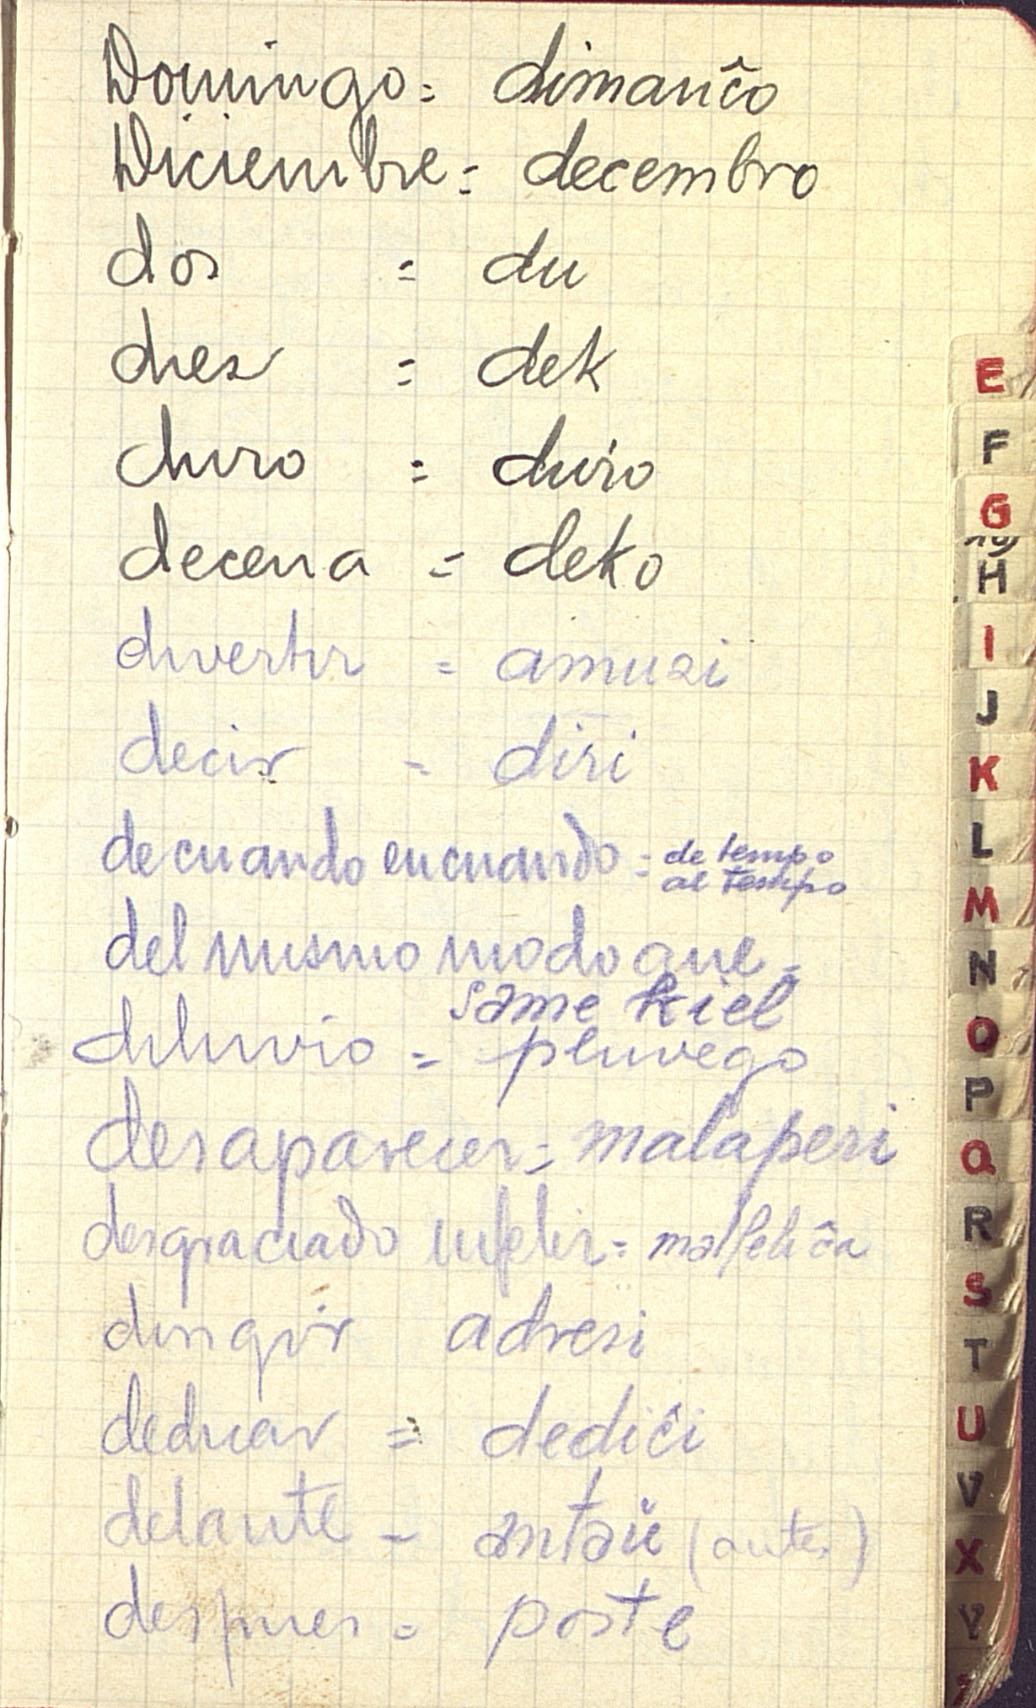 Domingo = dimanĉo
Diciembre = decembro
dos = du
diez = dek
divertir = amuzi
decena = deko
decir = diri
de cuando en cuando = de tempo
al tempo
del mismo modo que =
same kiel
diluvio = pluvego
desaparecer = malaperi
desgraciado infeliz = malfeliĉa
dirigir adresi
dedicar = dediĉi
delante = antaŭ (antes)
despues = poste
E
F
G
H
I
J
K
L
M
N
O
P
Q
R
S
T
U
V
X
Y